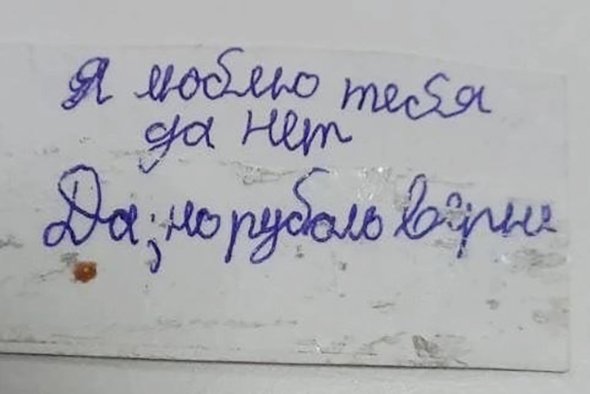 Я люблю тебя
да нет
Да, но рубаль верни